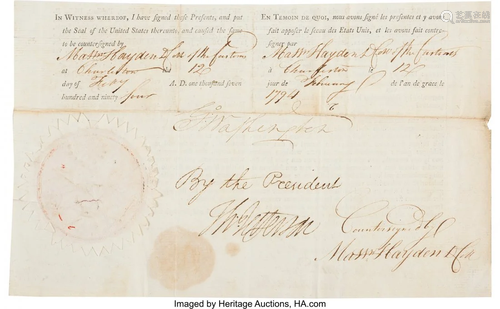 IN WITNESS WHEREOF, I have signed these Presents, and put
the Seal of the United States thereunto, and caused the same
to be countersigned by
Hayden D. Coll. of the Customs
at Charleston 12th
day of Feby A. D. one thousand seven
hundred and ninety four
EN TEMOIN DE QUOI, nous avons signé les presentes et y avons
fait apposer le sceau des Etats Unis, et les avons fait contre-
signer par
Hayden D. Coll. of the Customs
à Charleston 12th
jour de l'an de grace le
1794
Go. Washington
By the President
Th: Jefferson
Countersigned
Hayden D. Coll
Imaged by Heritage Auctions, HA.com